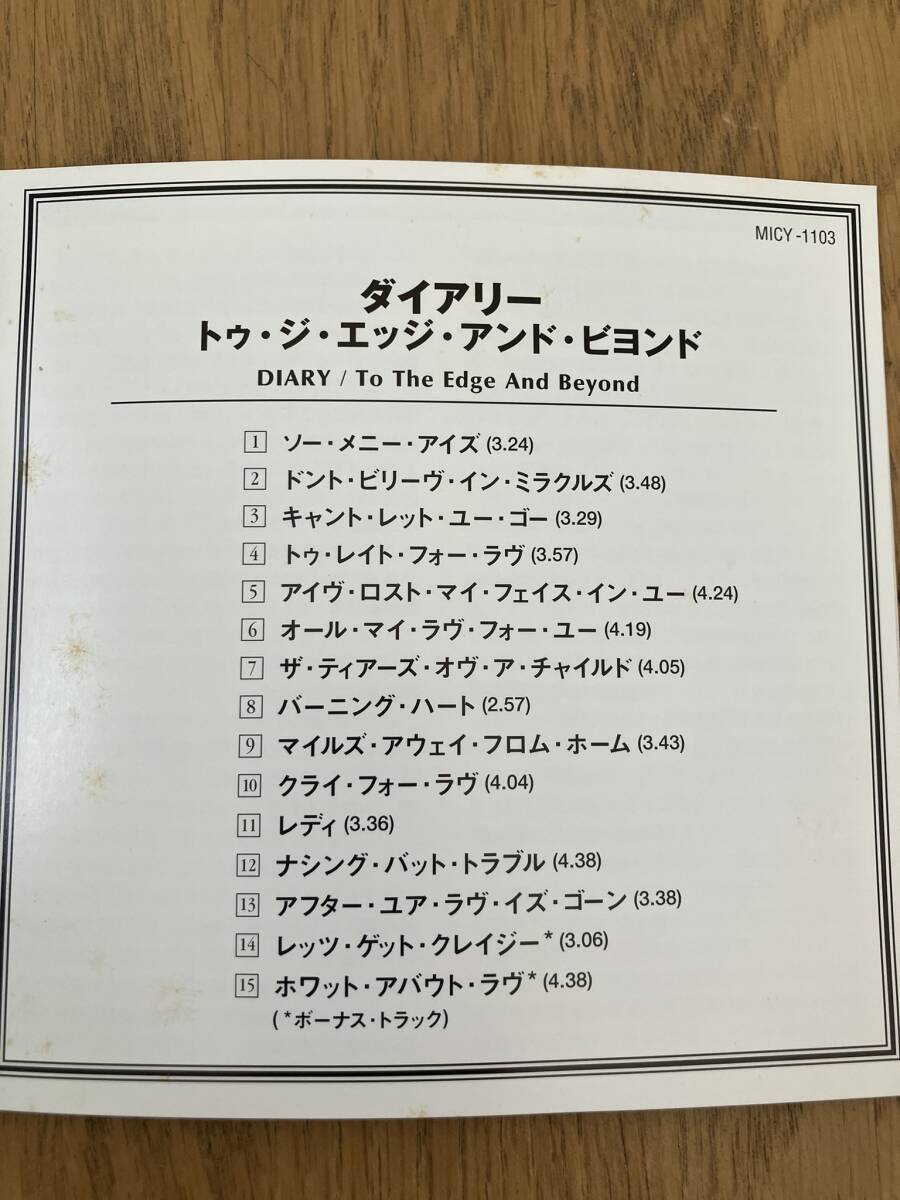 MICY-1103
ダイアリー
トゥ・ジ・エッジ・アンド・ビヨンド
DIARY / To The Edge And Beyond
1 ソー・メニー・アイズ (3.24)
2 ドント・ビリーヴ・イン・ミラクルズ (3.48)
3 キャント・レット・ユー・ゴー (3.29)
4 トゥ・レイト・フォー・ラヴ (3.57)
5 アイヴ・ロスト・マイ・フェイス・イン・ユー (4.24)
6 オール・マイ・ラヴ・フォー・ユー (4.19)
7 ザ・ティアーズ・オヴ・ア・チャイルド (4.05)
8 バーニング・ハート (2.57)
9 マイルズ・アウェイ・フロム・ホーム (3.43)
10 クライ・フォー・ラヴ (4.04)
11 レディ (3.36)
12 ナシング・バット・トラブル (4.38)
13 アフター・ユア・ラヴ・イズ・ゴーン (3.38)
14 レッツ・ゲット・クレイジー* (3.06)
15 ホワット・アバウト・ラヴ* (4.38)
(*ボーナス・トラック)